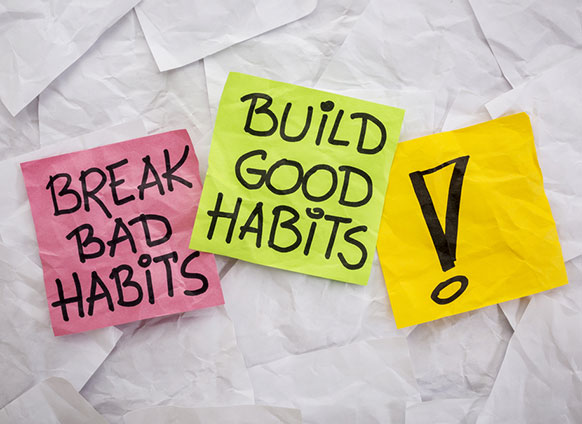 BREAK
BAD
HABiTS
BUiLD
GOOD
HABiTS
!